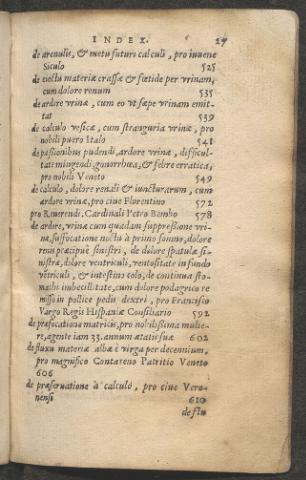 INDEX. 27
de arenulis, & metu futuri calculi, pro iuuene
Siculo 525
de eiectu materiæ crassæ & fœtidæ per vrinam,
cum dolore renum 535
de ardore vrinæ, cum eo vt sæpe vrinam emit-
tat 539
de calculo vesicæ, cum stranguria vrinæ, pro
nobili puero Italo 541
de passionibus pudendi, ardore vrinæ, difficul-
tate mingendi, gonorrhœa, & febre erratica,
pro nobili Veneto 549
de calculo, dolore renũ & iuncturarum, cum
ardore vrinæ, pro ciue Florentino 572
pro Reuerendi. Cardinali Petro Bembo 578
de ardore, vrinæ cum quadam suppressione vri-
næ, suffocatione noctu à primo somno, dolore
renis præcipuè sinistri, de dolore spatulæ si-
nistræ, dolore ventriculi, ventositate in fundo
vẽtriculi, & intestino colo, de continua sto-
machi imbecillitate, cum dolore podagrico re
misso in pollice pedis dextri, pro Francisco
Vargo Regis Hispaniæ Consiliario 592
de præfocatione matricis, pro nobilissima mulie-
re, agente iam 33. annum ætatis suæ 602
de fluxu materiæ albæ è virga per decennium,
pro magnifico Contareno Patritio Veneto
606
de præseruatione à calculo, pro ciue Vero-
nensi 610
de flu